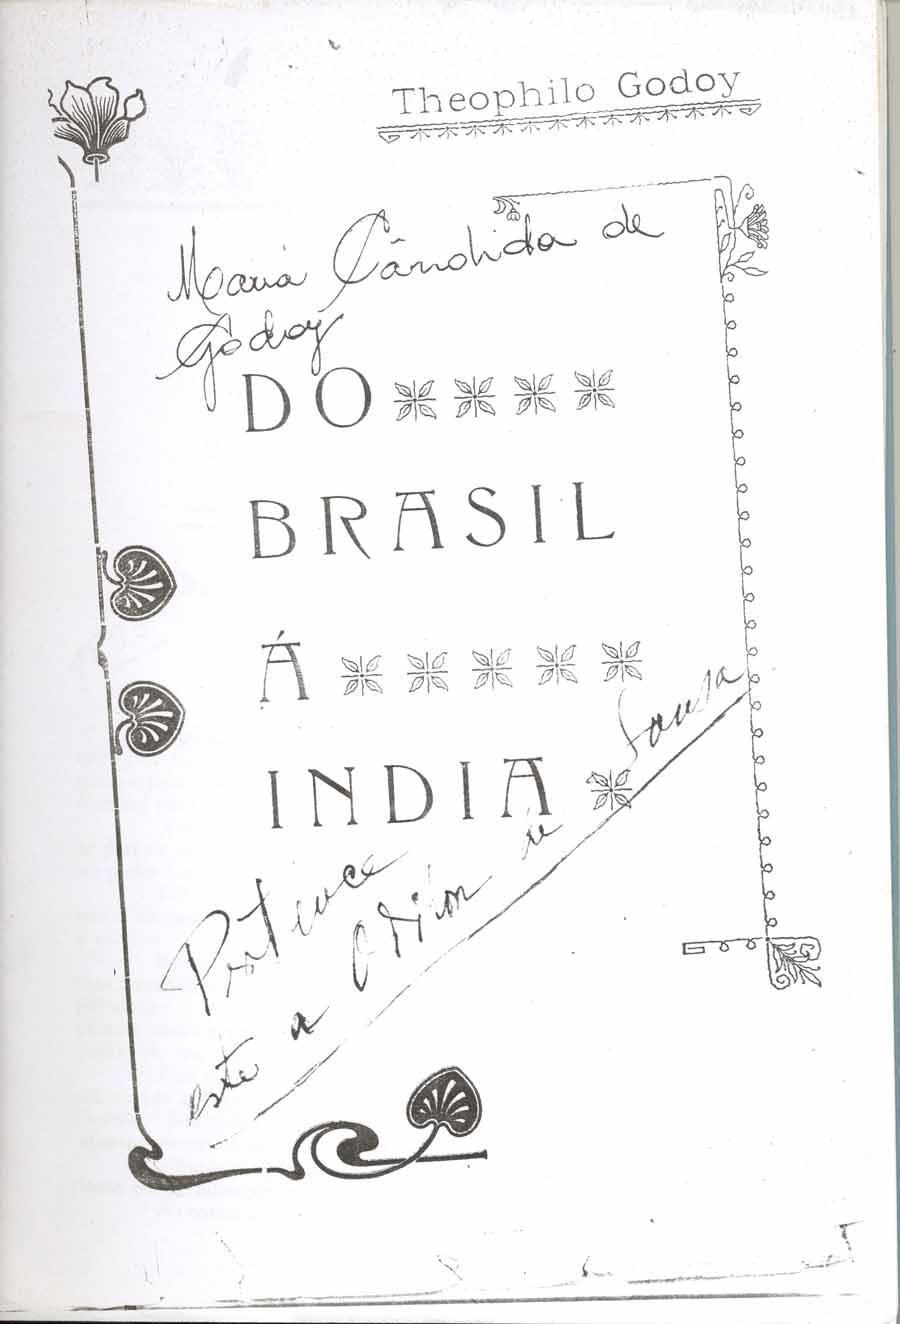 Theophilo Godoy
Maria Cândida de
Godoy
DO
BRASIL
Á
INDIA
Pertence
este a Odilon de Sousa